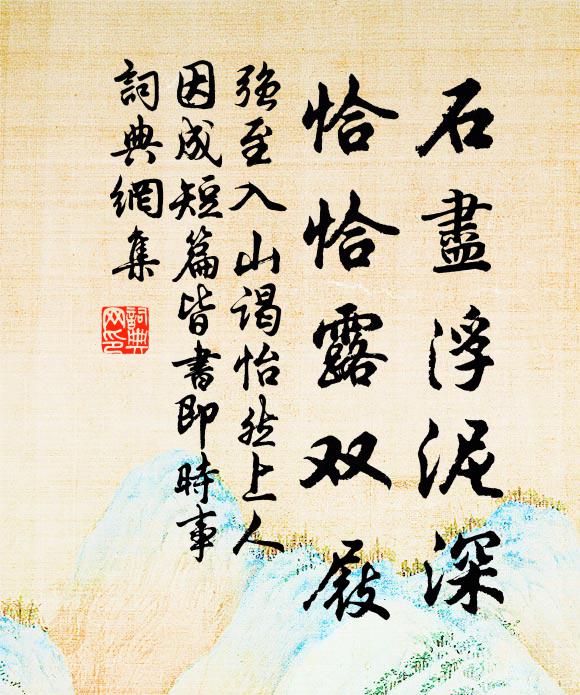 石盡浮泥深
恰恰露双屐
強至入山谒怡然上人
因成短篇皆書即時事
詞典網集
詞典网印